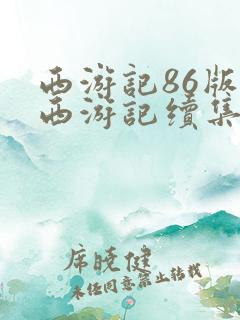 西游記86版
西游記续集
席晓健
未经同意禁止转载